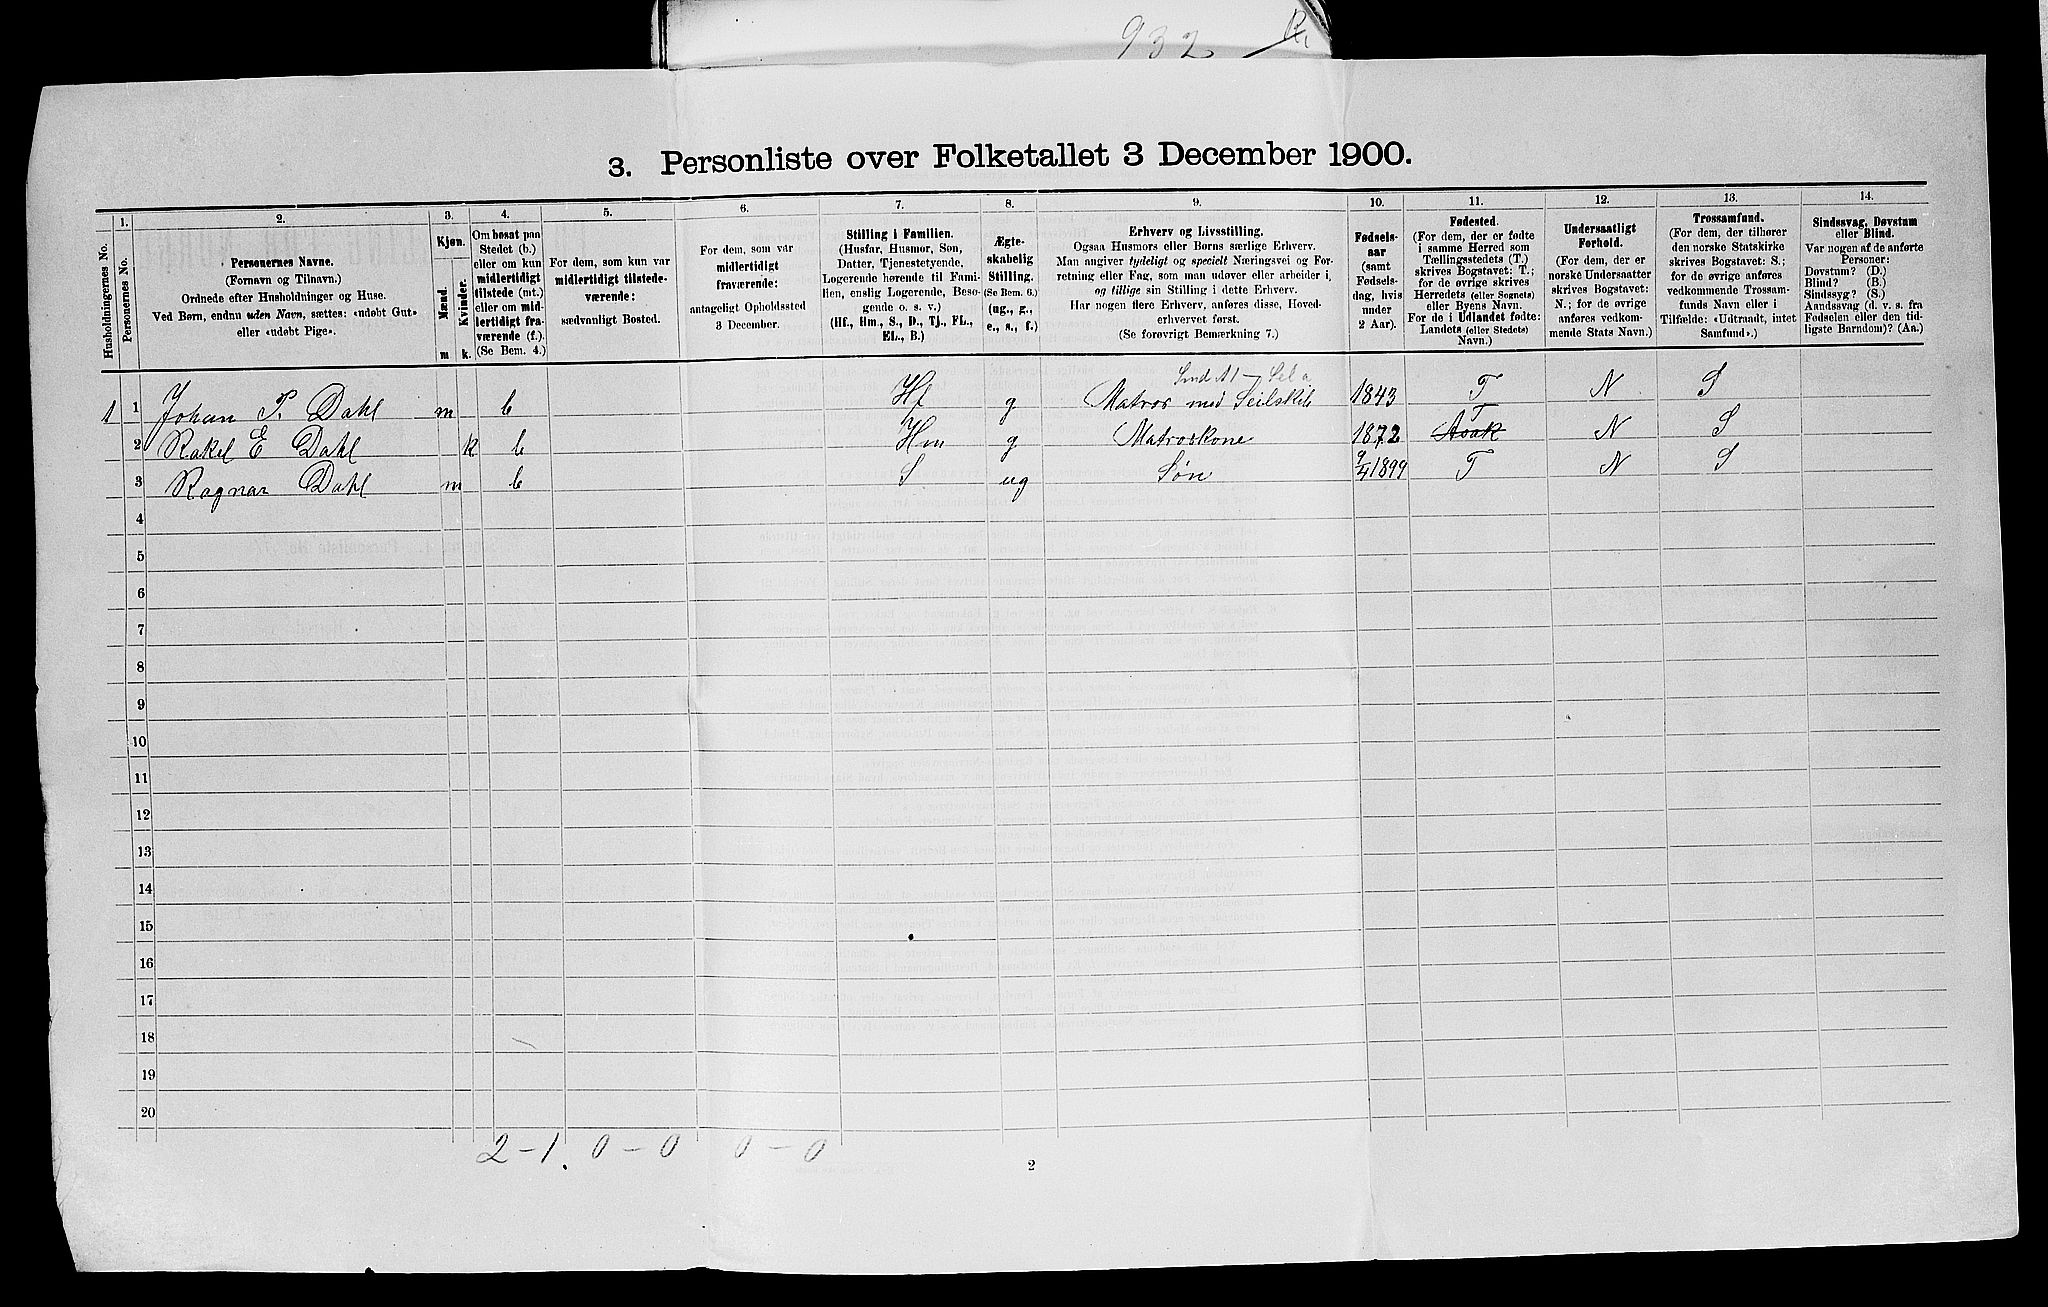 932
3. Personliste over Folketallet 3 December 1900.
1. 2. 3. 4. 5. 6. 7. 8. 9. 10. 11. 12. 13. 14.
Husholdningernes No.
Personernes No.
Personernes Navne.
(Fornavn og Tilnavn.)
Ordnede efter Husholdninger og Huse.
Ved Børn, endnu uden Navn, sættes: «udøbt Gut»
eller «udøbt Pige».
Kjøn.
Mænd.
Kvinder.
m k.
Om bosat paa
Stedet (b.)
eller om kun
midlertidigt
tilstede (mt.)
eller om mid-
lertidigt fra-
værende (f.)
(Se Bem. 4.)
For dem, som kun var
midlertidigt tilstede-
værende:
sædvanligt Bosted.
For dem, som var
midlertidigt
fraværende:
antageligt Opholdssted
3 December.
Stilling i Familien.
(Husfar, Husmor, Søn,
Datter, Tjenestetyende,
Logerende hørende til Fami-
lien, enslig Logerende, Besø-
gende o. s. v.)
(Hf., Hm., S., D., Tj., FL.,
EL., B.)
Ægte-
skabelig
Stilling.
(Se Bem. 6.)
(ug., g.,
e., s., f.)
Erhverv og Livsstilling.
Ogsaa Husmors eller Børns særlige Erhverv.
Man angiver tydeligt og specielt Næringsvei og For-
retning eller Fag, som man udøver eller arbeider i,
og tillige sin Stilling i dette Erhverv.
Har nogen flere Erhverv, anføres disse, Hoved-
erhvervet først.
(Se forøvrigt Bemærkning 7.)
Fødsels-
aar
(samt
Fødsels-
dag, hvis
under
2 Aar).
Fødested.
(For dem, der er fødte
i samme Herred som
Tællingsstedets (T.)
skrives Bogstavet: T.;
for de øvrige skrives
Herredets (eller Sognets)
eller Byens Navn.
For de i Udlandet fødte:
Landets (eller Stedets)
Navn.)
Undersaatligt
Forhold.
(For dem, der er
norske Undersaatter
skrives Bogstavet:
N.; for de øvrige
anføres vedkom-
mende Stats Navn.)
Trossamfund.
(For dem, der tilhører
den norske Statskirke
skrives Bogstavet: S.;
for de øvrige anføres
vedkommende Trossam-
funds Navn eller i
Tilfælde: «Udtraadt, intet
Samfund».)
Sindssvag, Døvstum
eller Blind.
Var nogen af de anførte
Personer:
Døvstum? (D.)
Blind? (B.)
Sindssyg? (S.)
Aandssvag (d. v. s. fra
Fødselen eller den tid-
ligste Barndom)? (Aa.)
1 1 Johan P. Dahl m b Hf g Matros med Seilskib 1843 T N S
2 Rakel E Dahl k b Hm g Matroskone 1872 Asak T N S
3 Ragnar Dahl m b S ug Søn 9/4 1899 T N S
4
5
6
7
8
9
10
11
12
13
14
15
16
17
18
19
20
2 – 1. 0 – 0 0 – 0
2